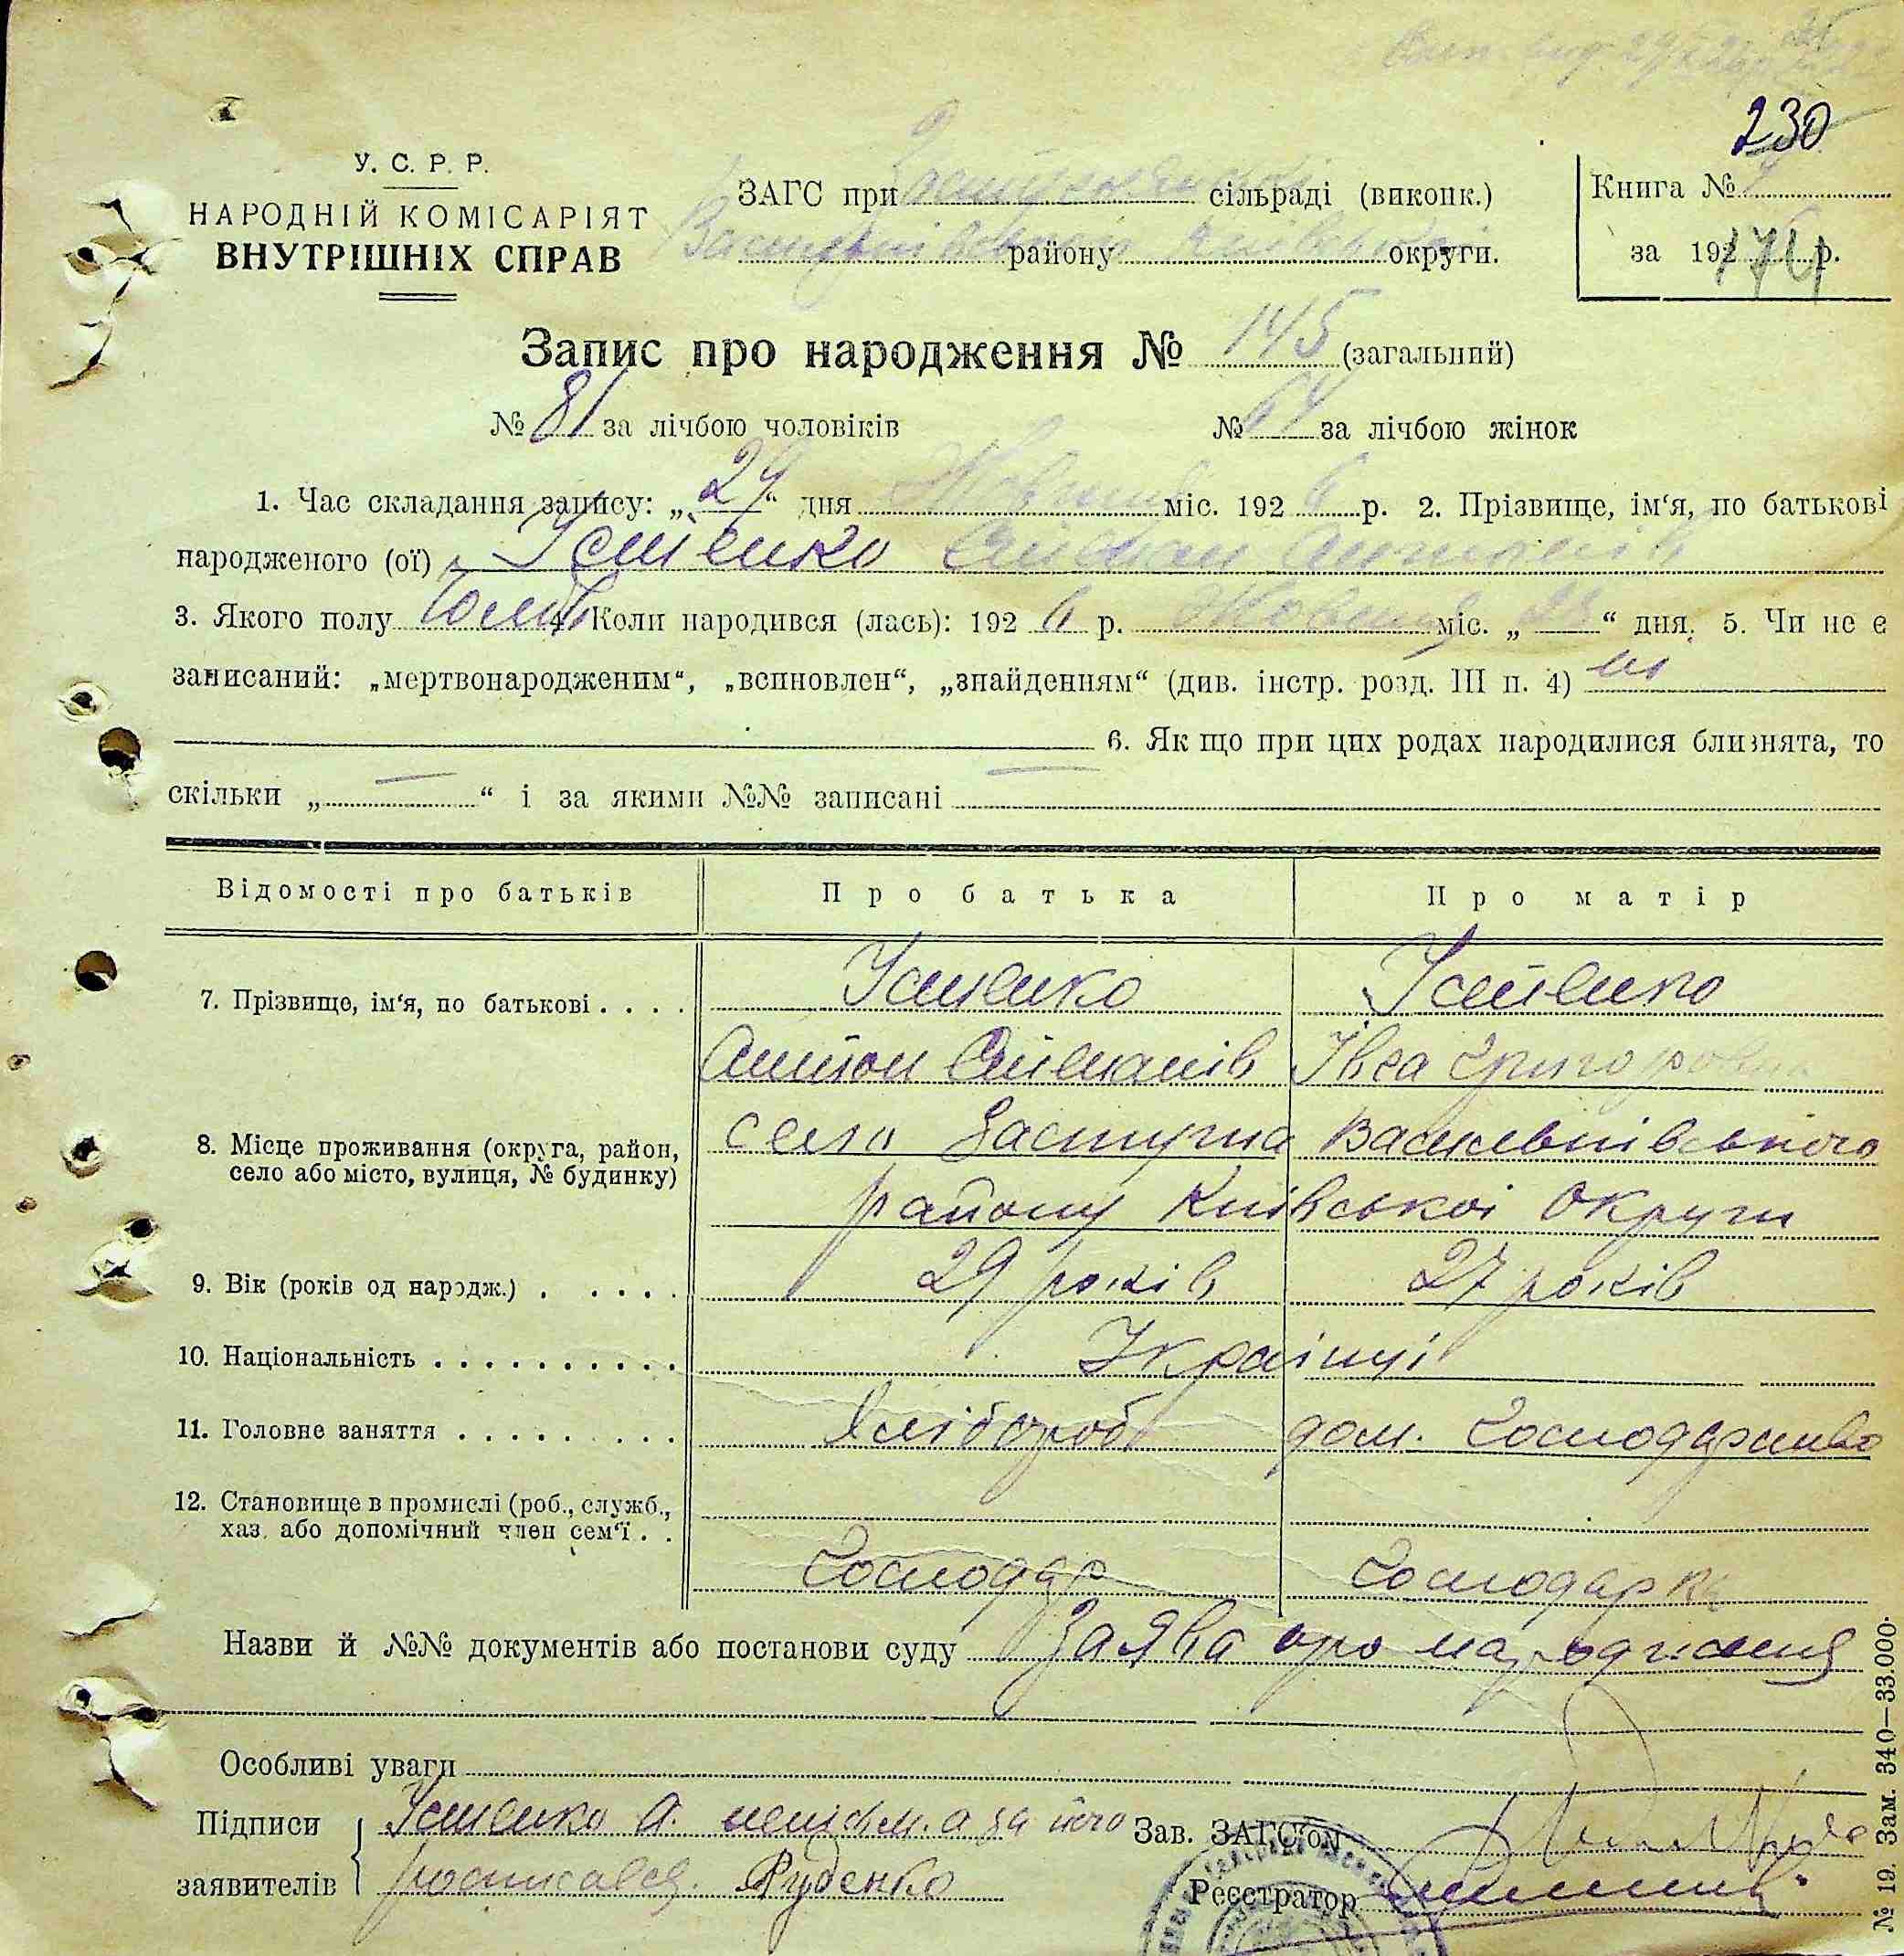 230
У. С. Р. Р.
НАРОДНІЙ КОМІСАРІЯТ
ВНУТРІШНІХ СПРАВ
ЗАГС при сільраді (виконк.)
району округи.
Книга №
за 192 р.
174
Запис про народження № 145 (загальний)
№ 81 за лічбою чоловіків № 64 за лічбою жінок
1. Час складання запису: „24“ дня Жовтня міс. 1926 р. 2. Прізвище, ім‘я, по батькові
народженого (ої) Устенко Степан Антонів
3. Якого полу 4. Коли народився (лась): 1926 р. Жовтня міс. „23“ дня. 5. Чи не є
записаний: „мертвонародженим“, „вспновлен“, „знайденням“ (див. інстр. розд. III п. 4) ні
6. Як що при цих родах народилися близнята, то
скільки „ — “ і за якими №№ записані —
Відомості про батьків Про батька Про матір
7. Прізвище, ім‘я, по батькові . . . . Устенко Устенко
Антон Степанів Івга Григоровна
8. Місце проживання (округа, район, село або місто, вулиця, № будинку) село Застугна Васильківського
району Київської Округи
9. Вік (років од народж.) . . . . . 29 років 27 років
10. Національність . . . . . . . . . . Українці
11. Головне заняття . . . . . . . . Хлібороб дом. Господарство
12. Становище в промислі (роб., служб.,
хаз. або допомічний член сем‘ї . .
Господар Господарка
Назви й №№ документів або постанови суду Заява про народження
Особливі уваги
Підписи Устенко А. неписьм. а за його Зав. ЗАГС‘ом
заявителів росписався. Руденко Реєстратор
№ 19 Зам. 340—33.000.